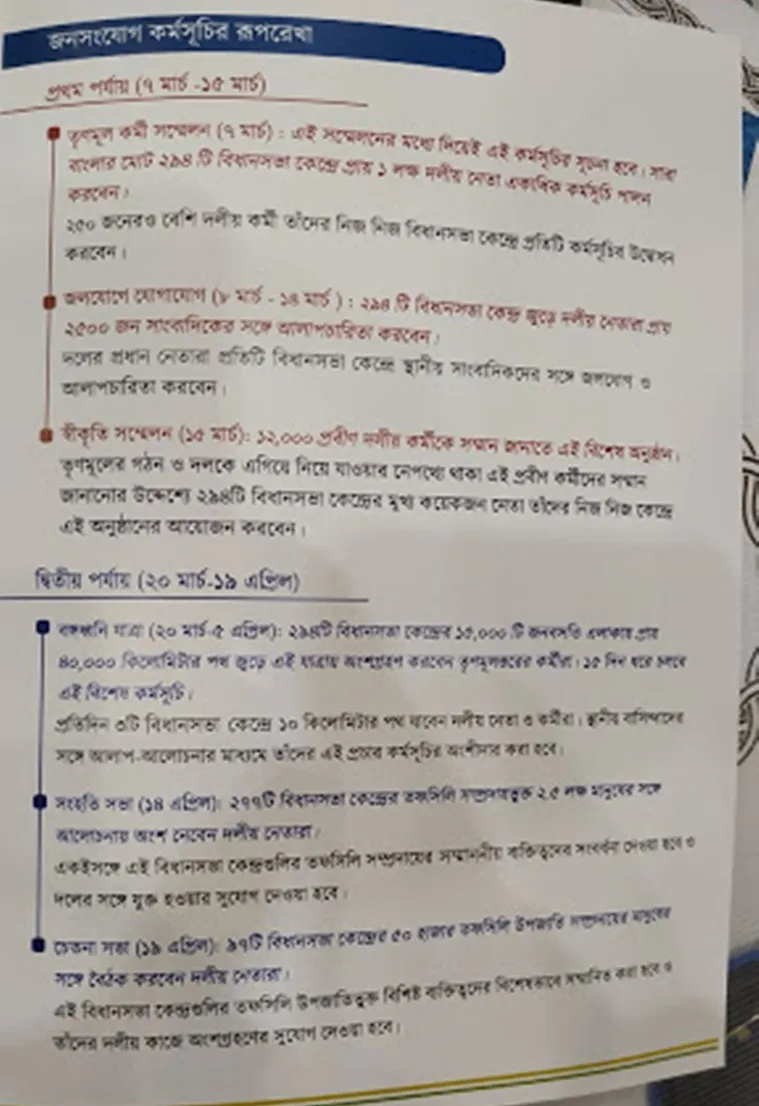 জনসংযোগ কর্মসূচির রূপরেখা
প্রথম পর্যায় (৭ মার্চ -১৫ মার্চ)
তৃণমূল কর্মী সম্মেলন (৭ মার্চ) : এই সম্মেলনের মধ্যে দিয়েই এই কর্মসূচির সূচনা হবে। সারা
বাংলার মোট ২৯৪ টি বিধানসভা কেন্দ্রে প্রায় ১ লক্ষ দলীয় নেতা একাধিক কর্মসূচি পালন
করবেন।
২৫০ জনেরও বেশি দলীয় কর্মী তাঁদের নিজ নিজ বিধানসভা কেন্দ্রে প্রতিটি কর্মসূচির উদ্বোধন
করবেন।
জলযোগে যোগাযোগ (৮ মার্চ - ১৪ মার্চ ) : ২৯৪ টি বিধানসভা কেন্দ্র জুড়ে দলীয় নেতারা প্রায়
২৫০০ জন সাংবাদিকের সঙ্গে আলাপচারিতা করবেন।
দলের প্রধান নেতারা প্রতিটি বিধানসভা কেন্দ্রে স্থানীয় সাংবাদিকদের সঙ্গে জলযোগ ও
আলাপচারিতা করবেন।
স্বীকৃতি সম্মেলন (১৫ মার্চ): ১২,০০০ প্রবীণ দলীয় কর্মীকে সম্মান জানাতে এই বিশেষ অনুষ্ঠান।
তৃণমূলের গঠন ও দলকে এগিয়ে নিয়ে যাওয়ার নেপথ্যে থাকা এই প্রবীণ কর্মীদের সম্মান
জানানোর উদ্দেশ্যে ২৯৪টি বিধানসভা কেন্দ্রের মুখ্য কয়েকজন নেতা তাঁদের নিজ নিজ কেন্দ্রে
এই অনুষ্ঠানের আয়োজন করবেন।
দ্বিতীয় পর্যায় (২০ মার্চ-১৯ এপ্রিল)
বঙ্গধ্বনি যাত্রা (২০ মার্চ-৫ এপ্রিল): ২৯৪টি বিধানসভা কেন্দ্রের ১৫,০০০ টি জনবসতি এলাকায় প্রায়
৪০,০০০ কিলোমিটার পথ জুড়ে এই যাত্রায় অংশগ্রহণ করবেন তৃণমূলস্তরের কর্মীরা। ১৫ দিন ধরে চলবে
এই বিশেষ কর্মসূচি।
প্রতিদিন ৩টি বিধানসভা কেন্দ্রে ১০ কিলোমিটার পথ যাবেন দলীয় নেতা ও কর্মীরা। স্থানীয় বাসিন্দাদের
সঙ্গে আলাপ-আলোচনার মাধ্যমে তাঁদের এই প্রচার কর্মসূচির অংশীদার করা হবে।
সংহতি সভা (১৪ এপ্রিল): ২৭৭টি বিধানসভা কেন্দ্রের তফসিলি সম্প্রদায়ভুক্ত ২.৫ লক্ষ মানুষের সঙ্গে
আলোচনায় অংশ নেবেন দলীয় নেতারা।
একইসঙ্গে এই বিধানসভা কেন্দ্রগুলির তফসিলি সম্প্রদায়ের সম্মাননীয় ব্যক্তিত্বদের সংবর্ধনা দেওয়া হবে ও
দলের সঙ্গে যুক্ত হওয়ার সুযোগ দেওয়া হবে।
চেতনা সভা (১৯ এপ্রিল): ৯৭টি বিধানসভা কেন্দ্রের ৫০ হাজার তফসিলি উপজাতি সম্প্রদায়ের মানুষের
সঙ্গে বৈঠক করবেন দলীয় নেতারা।
এই বিধানসভা কেন্দ্রগুলির তফসিলি উপজাতিভুক্ত বিশিষ্ট ব্যক্তিত্বদের বিশেষভাবে সম্মানিত করা হবে ও
তাঁদের দলীয় কাজে অংশগ্রহণের সুযোগ দেওয়া হবে।